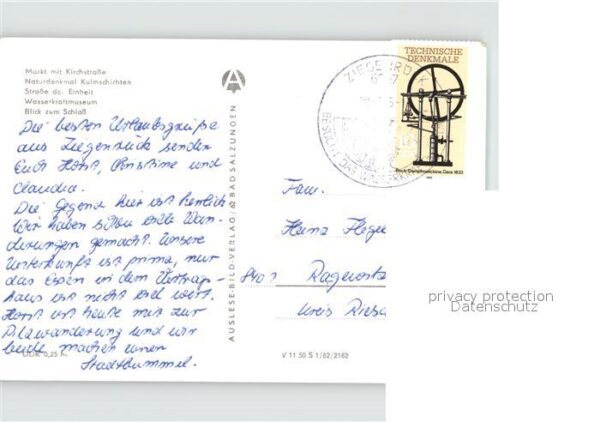 Markt mit Kirchstraße
Naturdenkmal Kulmschichten
Straße de. Einheit
Wasserkraftmuseum
Blick zum Schloß
Die besten Urlaubsgrüße
aus Ziegenrück senden
Euch Horst, Christine und
Claudia.
Die Gegend hier ist herrlich
Wir haben schon viele Wan-
derungen gemacht. Unsere
Unterkunft ist prima, nur
das Essen in dem Vertrags-
haus ist nicht viel wert.
Horst ist heute mit zur
Pilzwanderung und wir
beide machen einen
Stadtbummel.
DDR 0,25 M
AUSLESE-BILD-VERLAG / 62 BAD SALZUNGEN
V 11 50 S 1/82/2162
TECHNISCHE
DENKMALE
Bock-Dampfmaschine, Gera 1833
ZIEGENRÜ
BESUCHT DAS WASSERKR
Fam.
Heinz
8401
Ragewitz
Kreis Riesa
privacy protection
Datenschutz